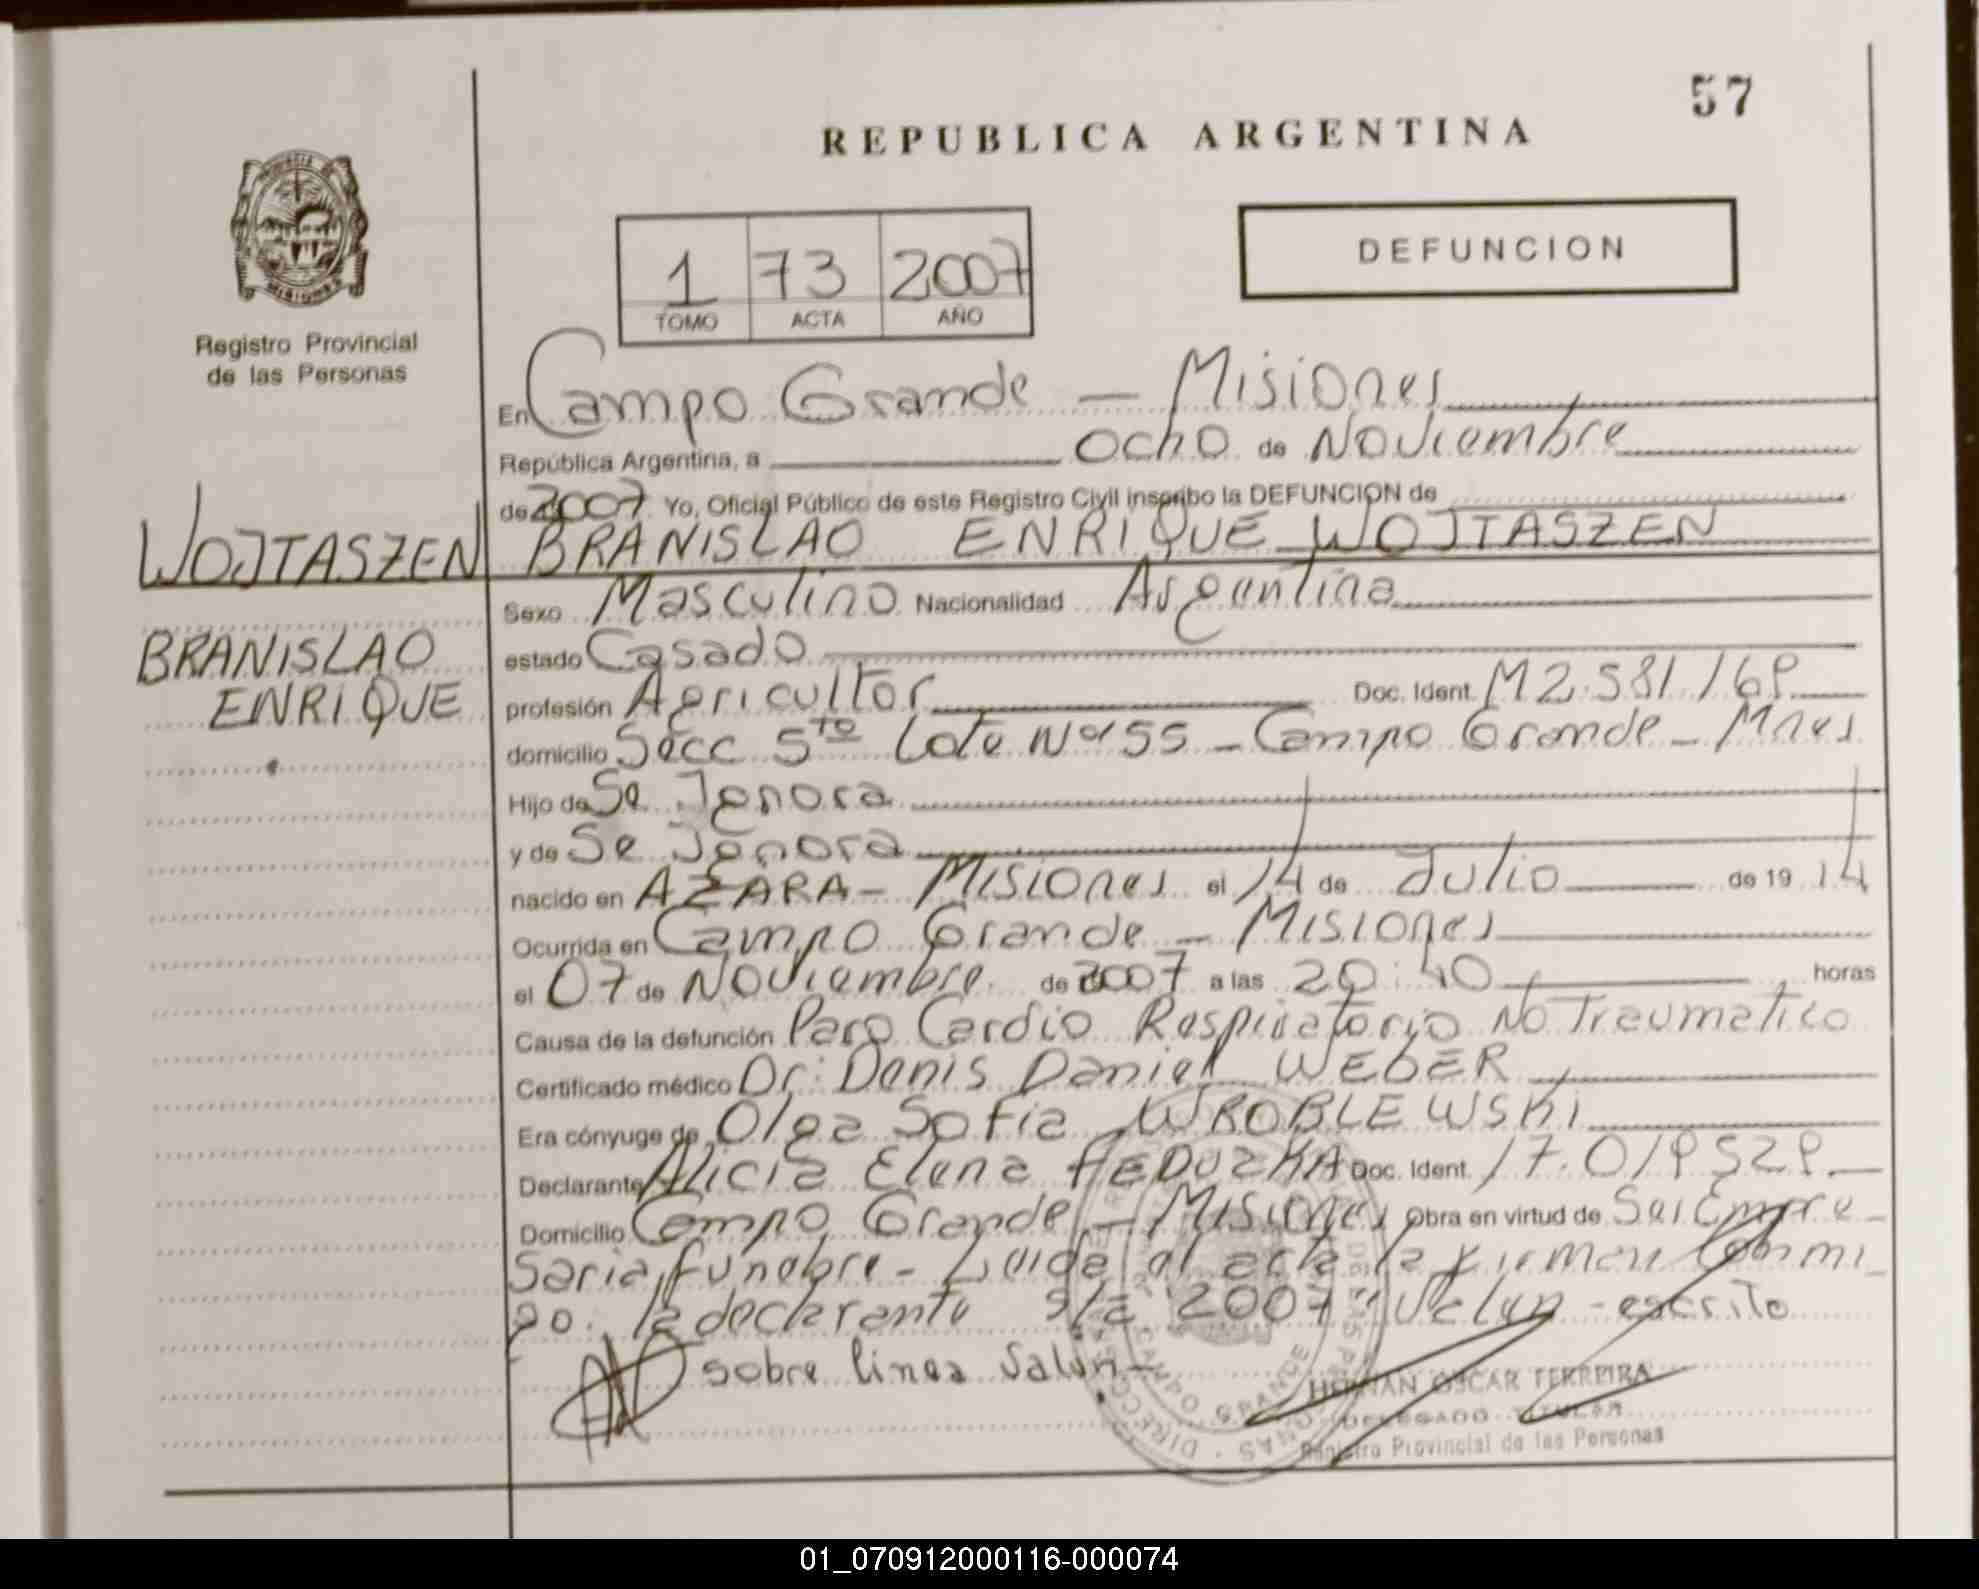 57
REPUBLICA ARGENTINA
DEFUNCION
1 73 2007
TOMO ACTA AÑO
Registro Provincial
de las Personas
En Campo Grande - Misiones
República Argentina, a ocho de Noviembre
de 2007 Yo, Oficial Público de este Registro Civil inscribo la DEFUNCION de
WOJTASZEN BRANISLAO ENRIQUE WOJTASZEN
Sexo Masculino Nacionalidad Argentina
BRANISLAO
estado Casado
ENRIQUE
profesión Agricultor Doc. Ident. M2.581.169
domicilio Secc 5ta Lote Nº 55 - Campo Grande - Mnes
Hijo de Se Ignora
y de Se Ignora
nacido en AZARA - Misiones el 14 de Julio de 19 14
Ocurrida en Campo Grande - Misiones
el 07 de Noviembre de 2007 a las 20:40 horas
Causa de la defunción Paro Cardio Respiratorio No Traumatico
Certificado médico Dr: Denis Daniel WEBER
Era cónyuge de Olga Sofia WROBLEWSKI
Declarante Alicia Elena FEDUZKA Doc. Ident. 17.019529
Domicilio Campo Grande - Misiones Obra en virtud de Ser Empre-
saria funebre - Leida el acta la firman Conmi_
go. la declarante s/r "2007" Valen - escrito
sobre linea Valen -
HERNAN OSCAR FERREIRA
DELEGADO TITULAR
Registro Provincial de las Personas
CAMPO GRANDE
01_070912000116-000074